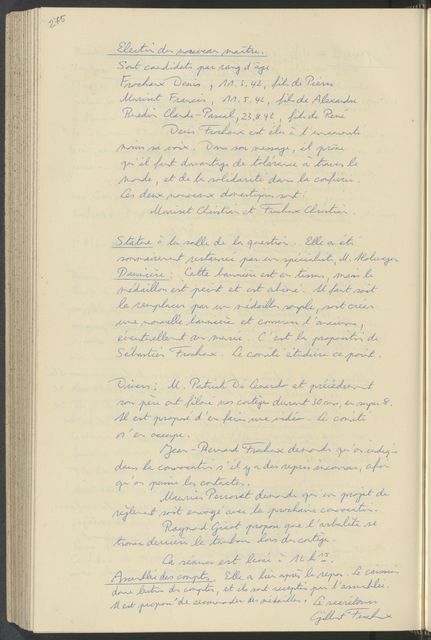 275
Election du nouveau maître.
Sont candidats par rang d'âge
Frochaux Denis, 11.5.42, fils de Pierre
Muriset Francis, 11.5.42, fils de Alexandre
Ruedin Claude-Pascal, 23.8.42, fils de René
Denis Frochaux est élu à l'unanimité
moins sa voix. Dans son message, il prône
qu'il faut davantage de tolérance à travers le
monde, et de la solidarité dans la confrérie.
Les deux nouveaux domestiques sont:
Muriset Christian et Frochaux Christian.
Statue à la salle de la question. Elle a été
sommairement restaurée par un spécialiste, M.
Bannière: Cette bannière est en tissu, mais le
médaillon est peint et est abîmé. Il faut soit
le remplacer par un médaillon souple, soit créer
une nouvelle bannière et conserver l'ancienne,
éventuellement au musée. C'est la proposition de
Sébastien Frochaux. Le comité étudiera ce point.
Divers: M. Patrick De et précédemment
son père ont filmé nos cortèges durant 30 ans, en super 8.
Il est proposé d'en faire une vidéo. Le comité
s'en occupe.
Jean-Bernard Frochaux demande qu'on indique
dans la convocation s'il y a des repas inconnus, afin
qu'on puisse les contacter.
Maurice Perroset demande qu'un projet de
règlement soit envoyé avec la prochaine convocation.
Raymond Gicot propose que l'arbalète se
trouve derrière le tambour lors du cortège.
La séance est levée à 12 h 15.
Assemblée des comptes. Elle a lieu après le repas. Le caissier
donne lecture des comptes, et ils sont acceptés par l'assemblée.
Il est proposé de recommander des médailles. Le secrétaire
Gilbert Frochaux